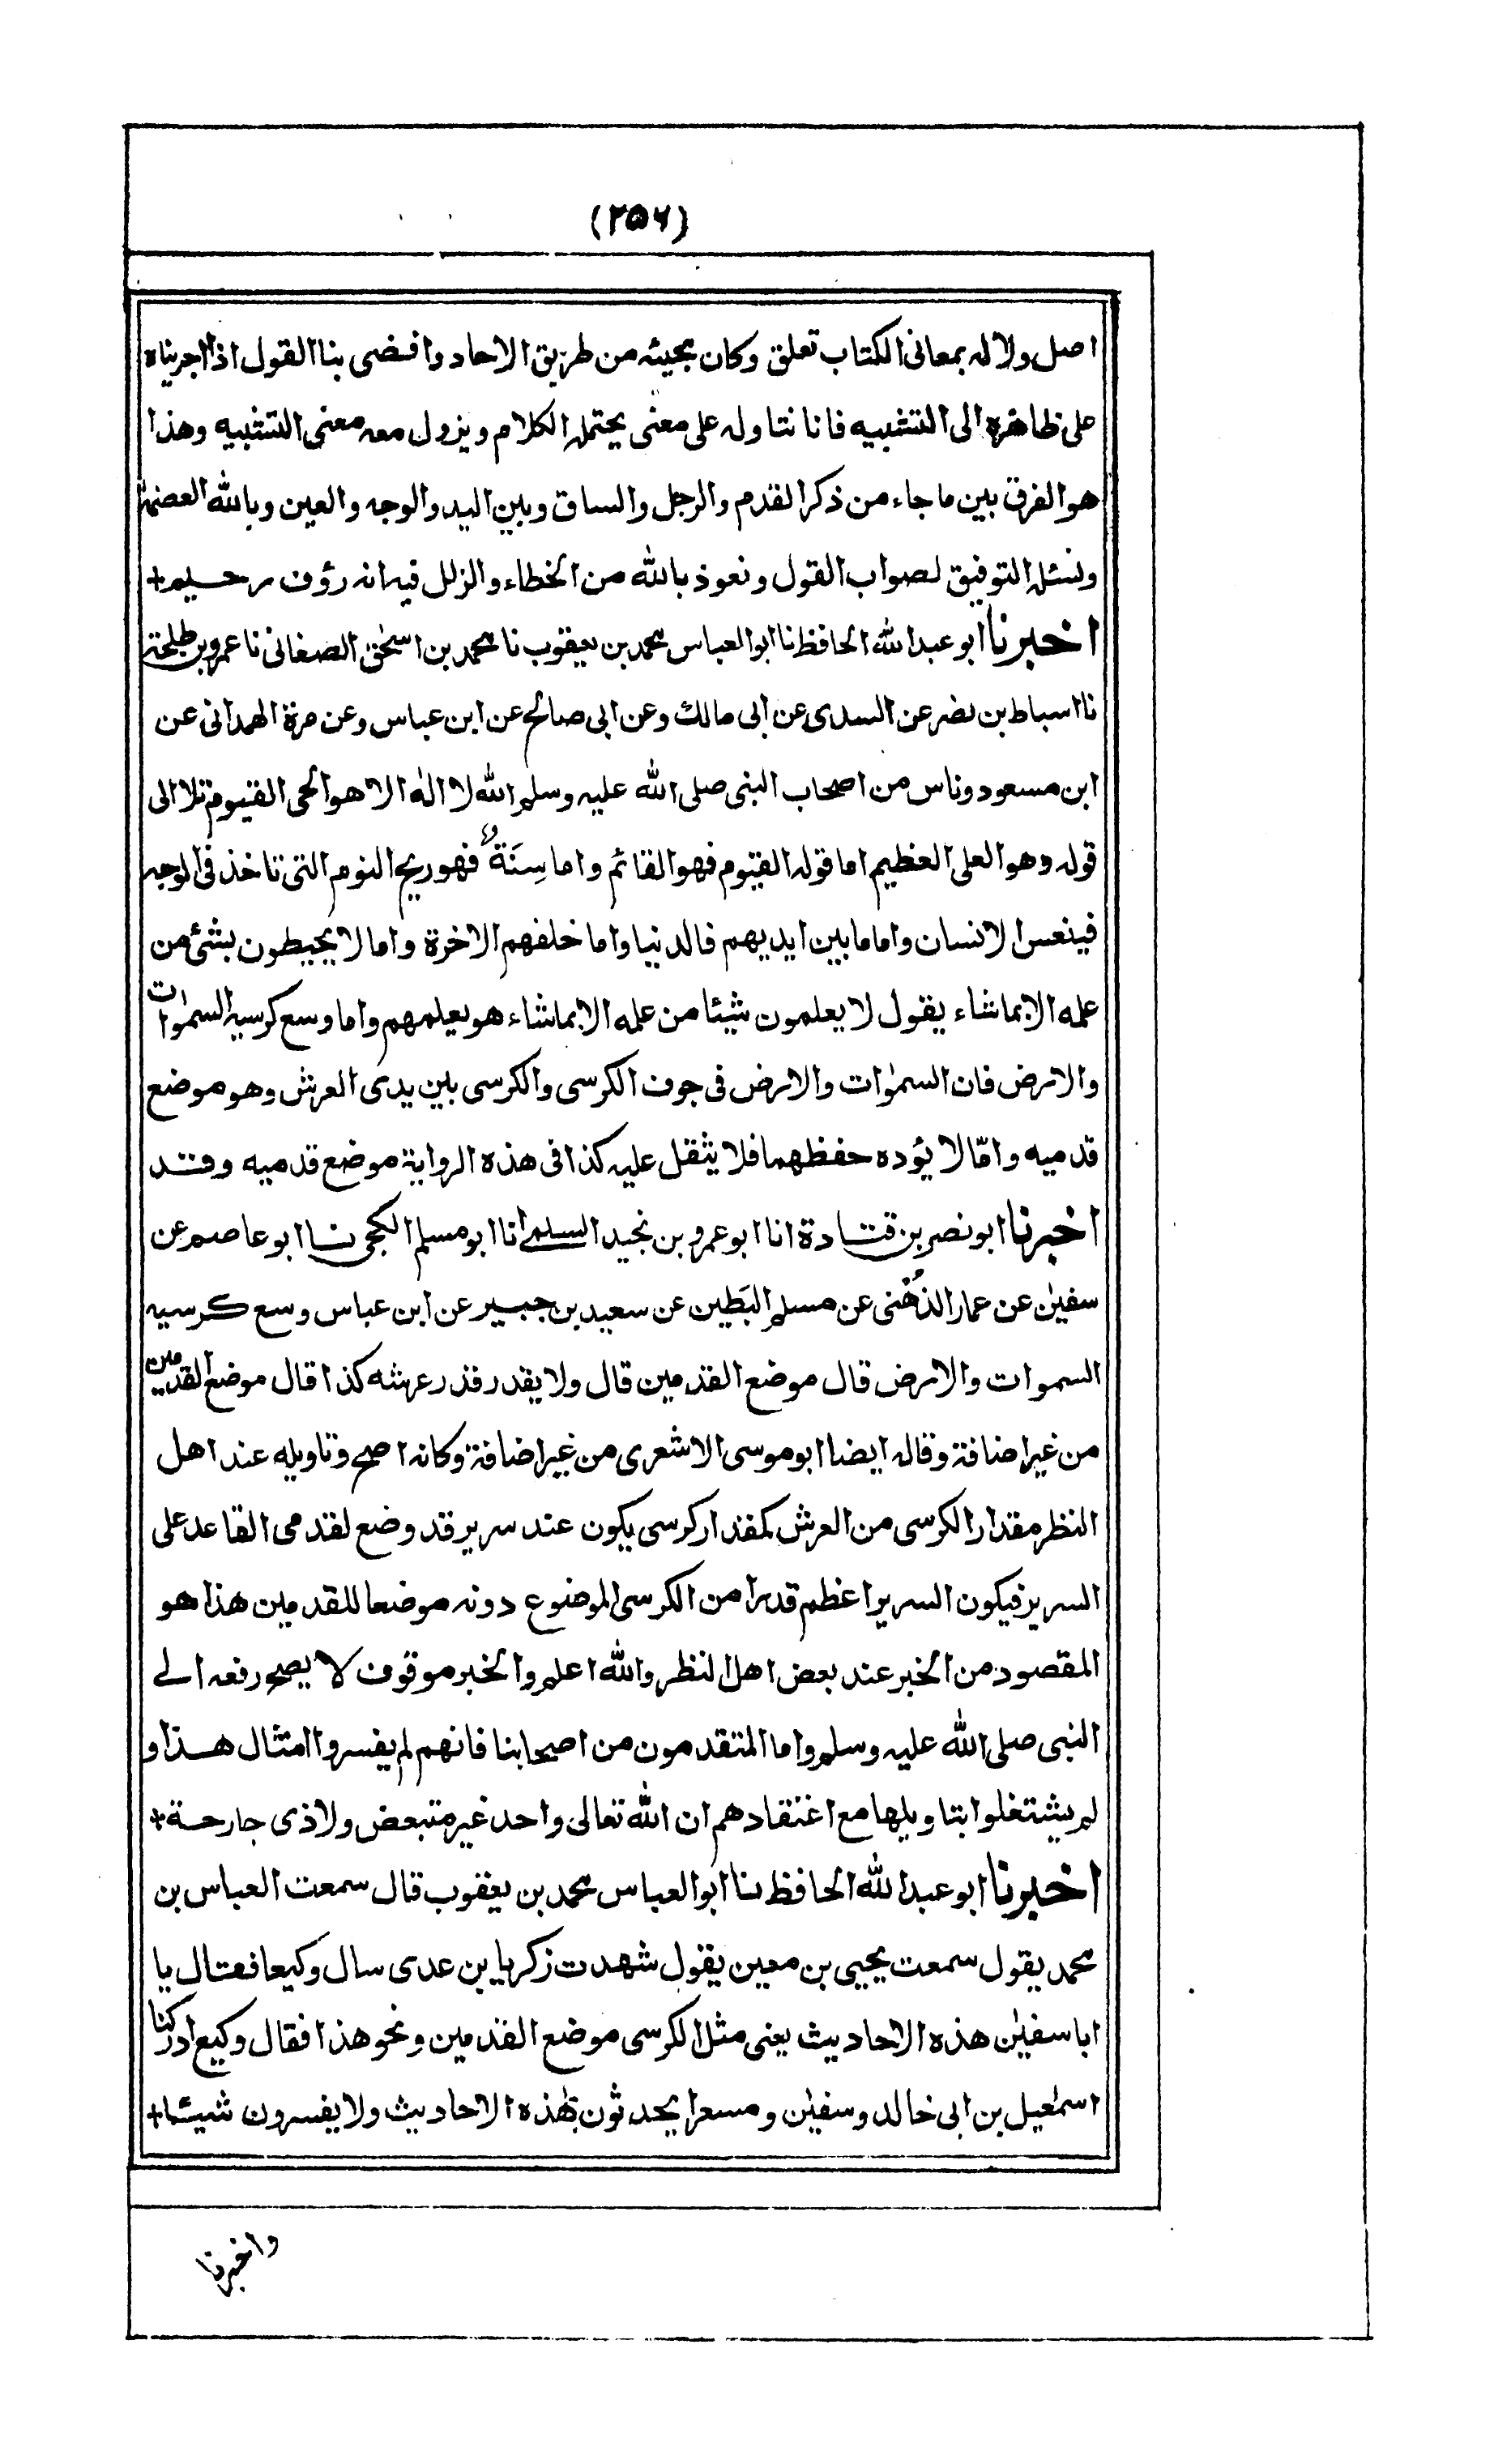 (۲۵۶)
اصل ولا له بمعانى الكتاب تعلق وكان مجيئه من طريق الاحاد وافضى بنا القول اذا اجريناه
على ظاهره الى التشبيه فانا نتاوله على معنى يحتمله الكلام ويزول معه معنى التشبيه وهذا
هو الفرق بين ما جاء من ذكر القدم والرجل والساق وبين اليد والوجه والعين وبالله العصمة
ونسئله التوفيق لصواب القول ونعوذ بالله من الخطاء والزلل فيه انه رؤف رحيم+
اخبرنا ابو عبد الله الحافظ نا ابو العباس محمد بن يعقوب نا محمد بن اسحق الصغانى نا عمرو بن طلحة
نا اسباط بن نصر عن السدى عن ابى مالك وعن ابى صالح عن ابن عباس وعن مرة الهمدانى عن
ابن مسعود وناس من اصحاب النبى صلى الله عليه وسلم الله لا اله الا هو الحى القيوم تلا الى
قوله وهو العلى العظيم اما قوله القيوم فهو القائم واما سِنَةٌ فهو ريح النوم التى تاخذ فى الوجه
فينعس الانسان واما ما بين ايديهم فالدنيا واما خلفهم الاخرة واما لا يحيطون بشئ من
علمه الا بما شاء يقول لا يعلمون شيئا من علمه الا بما شاء هو يعلمهم واما وسع كرسيه السموات
والارض فان السمٰوات والارض فى جوف الكرسى والكرسى بين يدى العرش وهو موضع
قدميه وامّا لا يؤده حفظهما فلا يثقل عليه كذا فى هذه الرواية موضع قدميه وقد
اخبرنا ابو نصر بن قتادة انا ابو عمرو بن نجيد السلمى انا ابو مسلم الكجى نا ابو عاصم عن
سفيٰن عن عمار الدُهْنى عن مسلم البَطين عن سعيد بن جبير عن ابن عباس وسع كرسيه
السموات والارض قال موضع القدمين قال ولا يقدر قدر عرشه كذا قال موضع القدمين
من غير اضافة وقاله ايضا ابو موسى الاشعرى من غير اضافة وكانه اصح وتاويله عند اهل
النظر مقدار الكرسى من العرش كمقدار كرسى يكون عند سرير قد وضع لقدمى القاعد على
السرير فيكون السرير اعظم قدرا من الكرسى الموضوع دونه موضعا للقدمين هذا هو
المقصود من الخبر عند بعض اهل النظر والله اعلم والخبر موقوف لا يصح رفعه الى
النبى صلى الله عليه وسلم واما المتقدمون من اصحابنا فانهم لم يفسروا امثال هذا و
لم يشتغلوا بتاويلها مع اعتقادهم ان الله تعالى واحد غير متبعض ولا ذى جارحة+
اخبرنا ابو عبد الله الحافظ نا ابو العباس محمد بن يعقوب قال سمعت العباس بن
محمد يقول سمعت يحيى بن معين يقول شهدت زكريا بن عدى سال وكيعا فقال يا
ابا سفيٰن هذه الاحاديث يعنى مثل الكرسى موضع القدمين ونحو هذا فقال وكيع ادركنا
اسمٰعيل بن ابى خالد وسفيٰن ومسعرا يحدثون بهٰذه الاحاديث ولا يفسرون شيئا+
واخبرنا